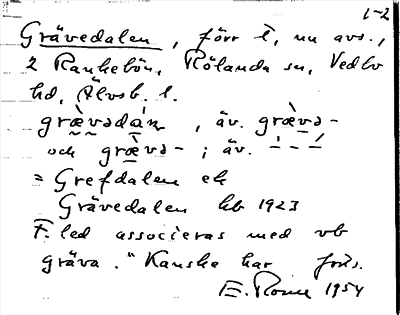 1-2
Grävedalen, förr l, nu avs.,
2 Rankebön, Rölanda sn, Vedbo
hd, Älvsb. l.
græ̀vədàɳ, äv. græ̀və-
och græ̀və- ; äv. – – –́
= Grefdalen ek
Grävedalen kb 1923
F. led associeras med vb
gräva. "Kanske har
E. 1954